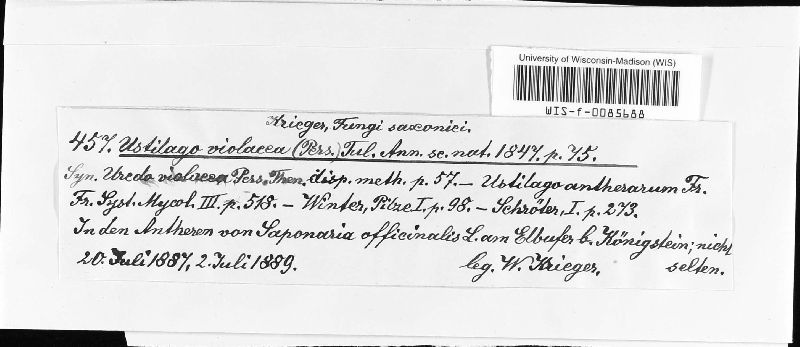 University of Wisconsin-Madison (WIS)
WIS-f-0085688
Krieger, Fungi saxonici.
457. Ustilago violacea (Pers.) Tul. Ann. sc. nat. 1847. p. 75.
Syn. Uredo violacea Pers. Then. disp. meth. p. 57. — Ustilago antherarum Fr.
Fr. Syst. Mycol. III. p. 518. — Winter, Pilze I. p. 98. — Schröter, I. p. 273.
In den Antheren von Saponaria officinalis L. am Elbufer b. Königstein; nicht
20. Juli 1887, 2. Juli 1889. leg. W. Krieger. selten.